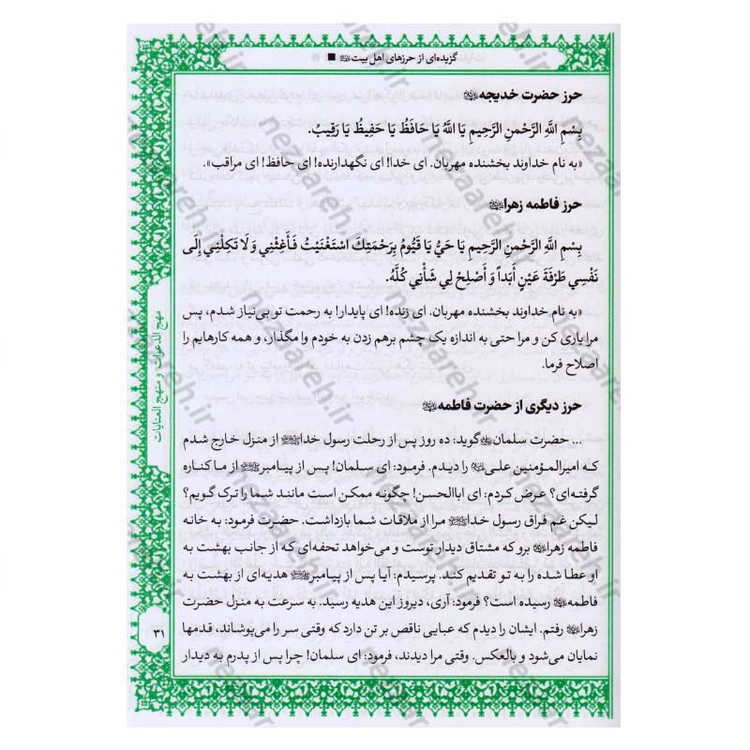 گزیده‌ای از حرزهای اهل بیت ■
حرز حضرت خدیجه
بِسْمِ اللَّهِ الرَّحْمنِ الرَّحِيمِ يَا اللَّهُ يَا حَافِظُ يَا حَفِيظُ يَا رَقِيبُ.
«به نام خداوند بخشنده مهربان. ای خدا! ای نگهدارنده! ای حافظ! ای مراقب».
حرز فاطمه زهرا
بِسْمِ اللَّهِ الرَّحْمنِ الرَّحِيمِ يَا حَيُّ يَا قَيُّومُ بِرَحْمَتِكَ اسْتَغَثْتُ فَأَغِثْنِي وَ لَا تَكِلْنِي إِلَى
نَفْسِي طَرْفَةَ عَيْنٍ أَبَداً وَ أَصْلِحْ لِي شَأْنِي كُلَّهُ.
«به نام خداوند بخشنده مهربان. ای زنده! ای پایدار! به رحمت تو بی‌نیاز شدم، پس
مرا یاری کن و مرا حتی به اندازه یک چشم برهم زدن به خودم وا مگذار، و همه کارهایم را
اصلاح فرما.
حرز دیگری از حضرت فاطمه
... حضرت سلمان گوید: ده روز پس از رحلت رسول خدا از منزل خارج شدم
که امیرالمؤمنین علی را دیدم. فرمود: ای سلمان! پس از پیامبر از ما کناره
گرفته‌ای؟ عرض کردم: ای اباالحسن! چگونه ممکن است مانند شما را ترک گویم؟
لیکن غم فراق رسول خدا مرا از ملاقات شما بازداشت. حضرت فرمود: به خانه
فاطمه زهرا برو که مشتاق دیدار توست و می‌خواهد تحفه‌ای که از جانب بهشت به
او عطا شده را به تو تقدیم کند. پرسیدم: آیا پس از پیامبر هدیه‌ای از بهشت به
فاطمه رسیده است؟ فرمود: آری، دیروز این هدیه رسید. به سرعت به منزل حضرت
زهرا رفتم. ایشان را دیدم که عبایی ناقص بر تن دارد که وقتی سر را می‌پوشاند، قدمها
نمایان می‌شود و بالعکس. وقتی مرا دیدند، فرمود: ای سلمان! چرا پس از پدرم به دیدار
مهج الدعوات و منهج العنایات
۳۱
nezaareh.ir